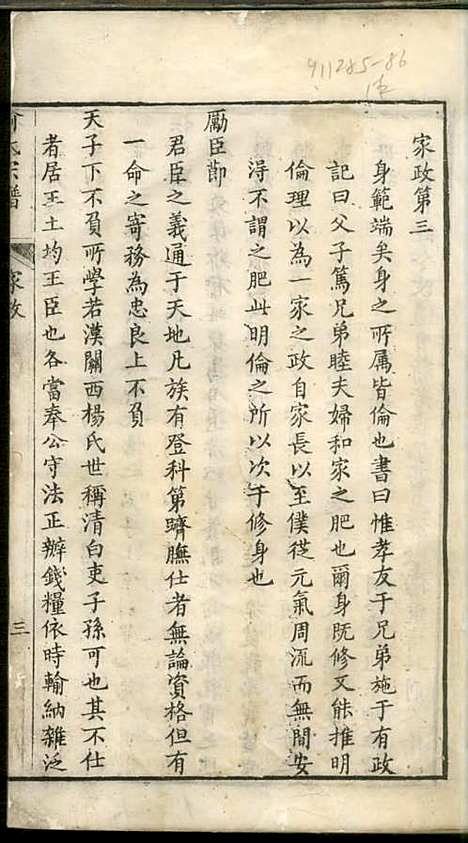 家政第三
身範端矣身之所属皆倫也書曰惟孝友于兄弟施于有政
記曰父子篤兄弟睦夫婦和家之肥也爾身既修又能推明
倫理以為一家之政自家長以至僕從元氣周流而無間安
得不謂之肥此明倫之所以次于修身也
勵臣節
君臣之義通于天地凡族有登科第躋膴仕者無論資格但有
一命之寄務為忠良上不負
天子下不負所學若漢關西楊氏世稱清白吏子孫可也其不仕
者居王土均王臣也各當奉公守法正辦錢糧依時輸納雜泛
宗譜
家政
三
911285-86